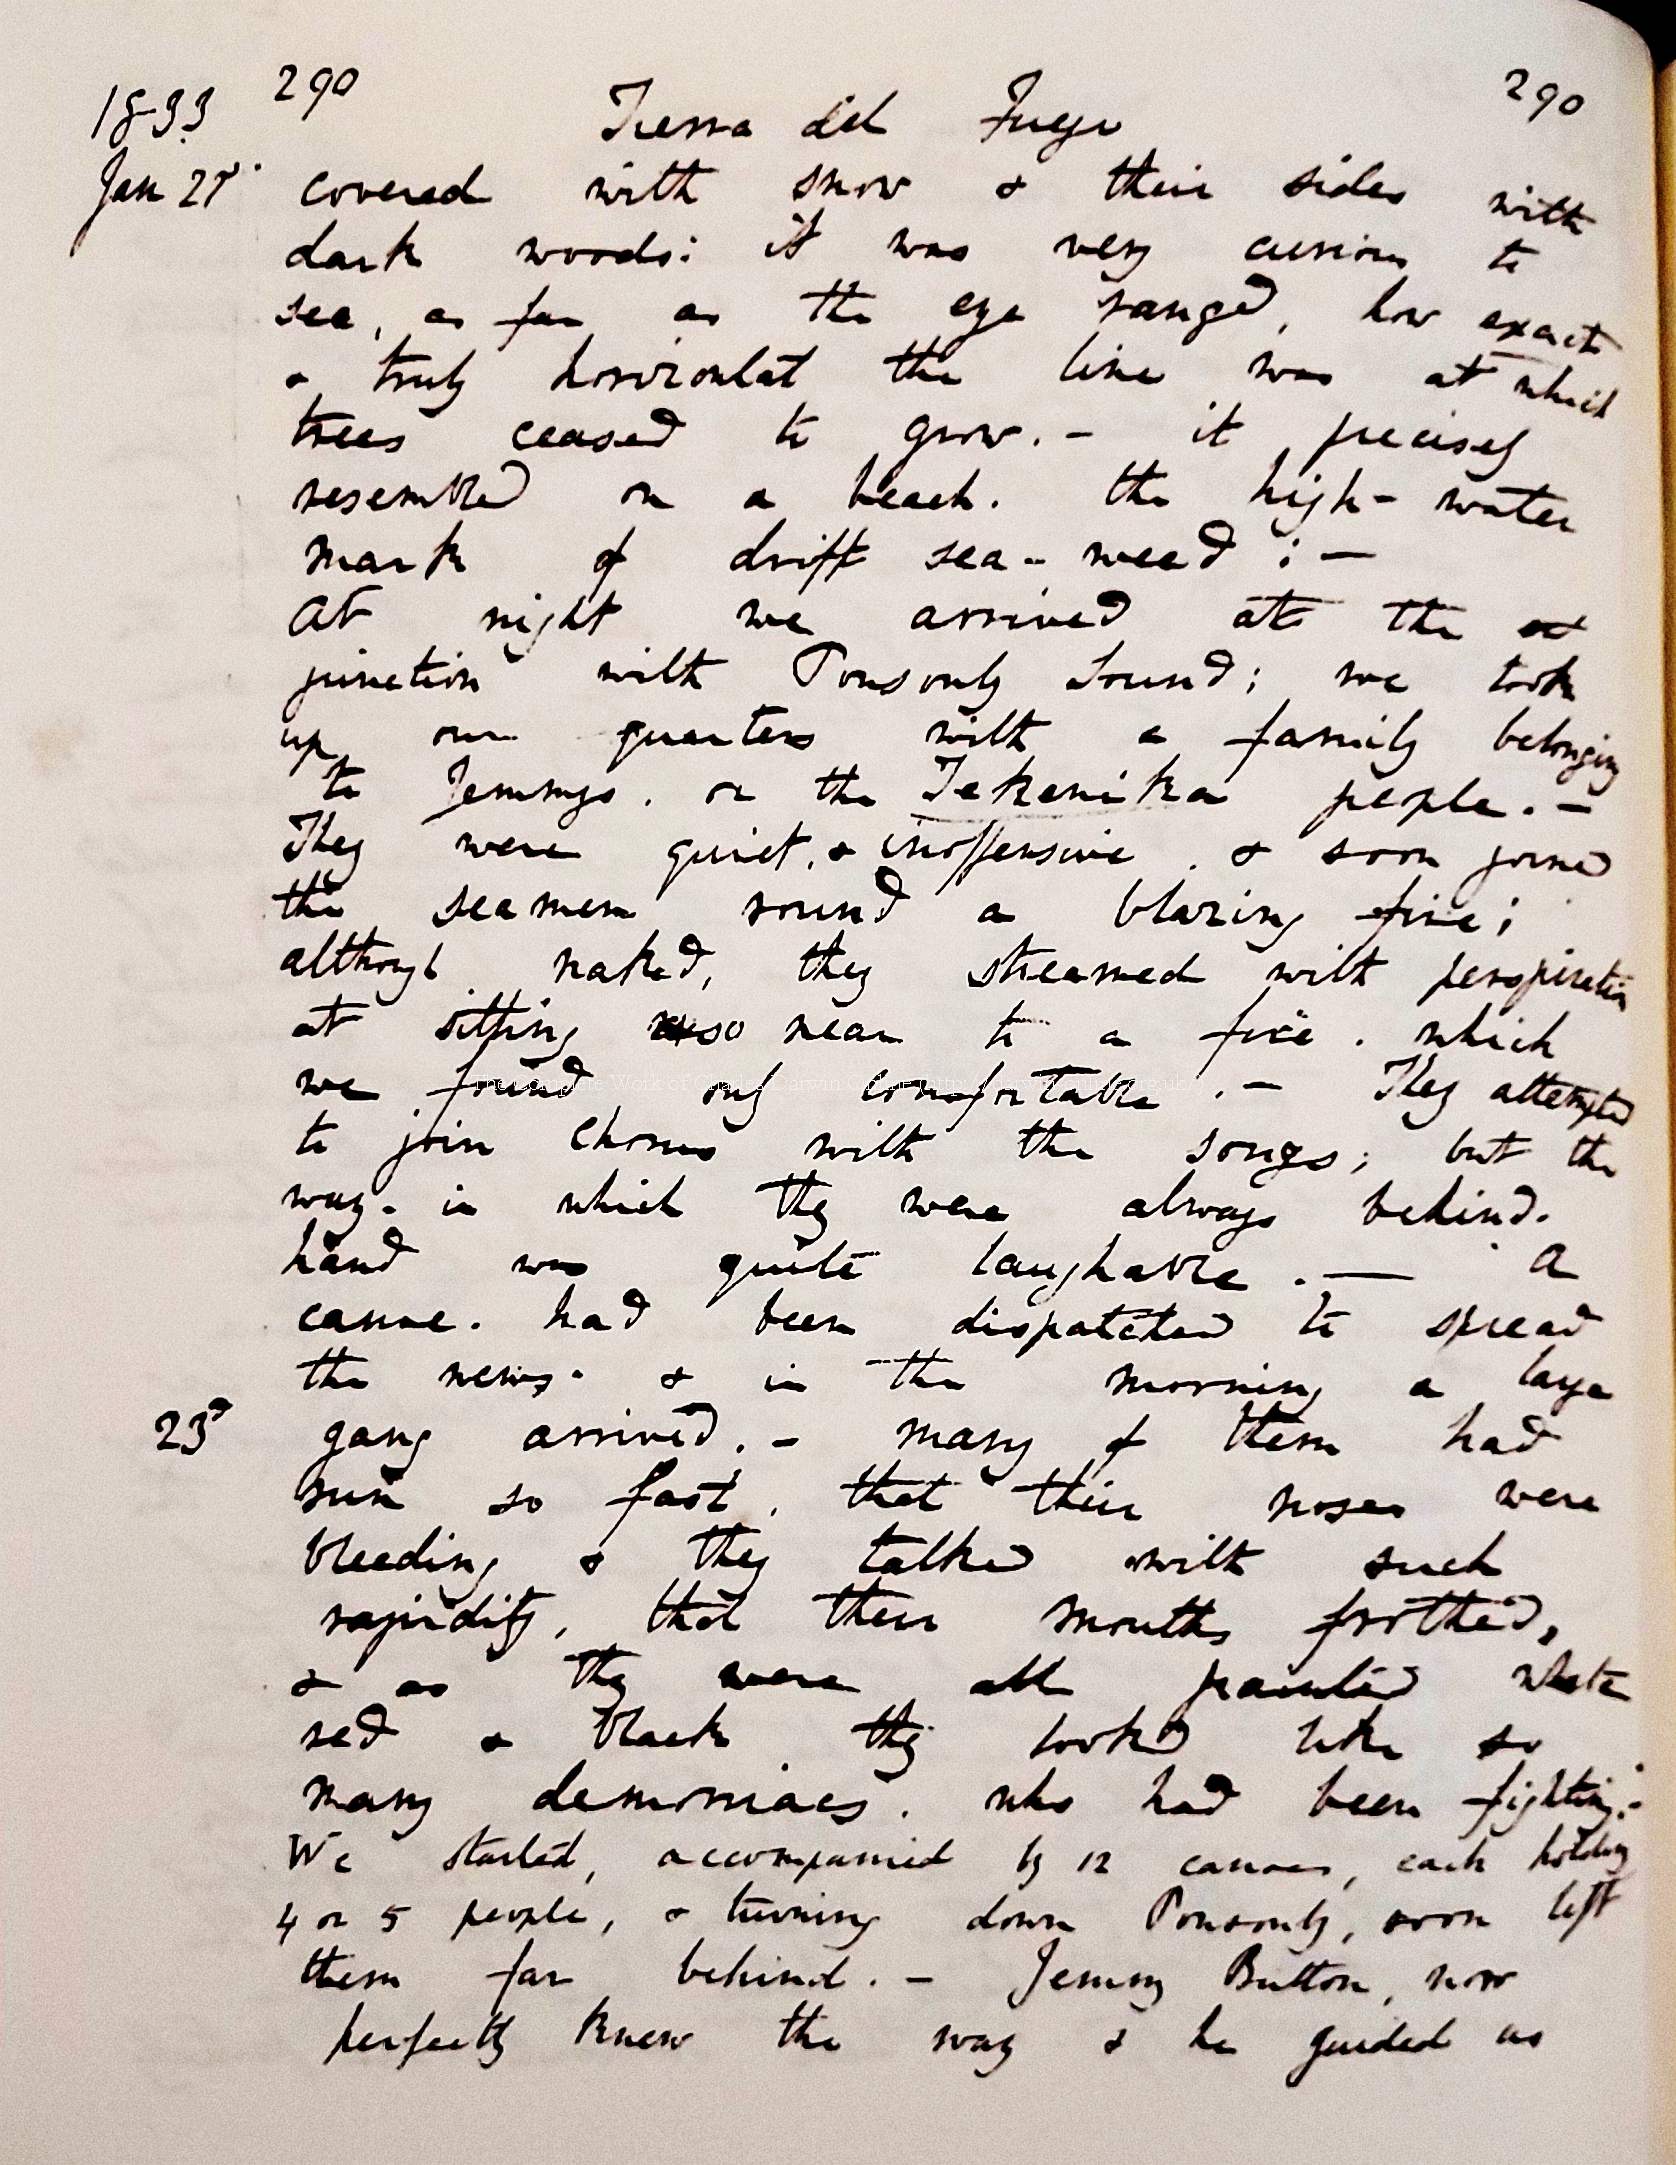 290 290
1833 Tierra del Fuego
Jan 21st. covered with snow & their sides with
dark woods: it was very curious to
see, as far as the eye ranged, how exact
& truly horizontal the line was at which
trees ceased to grow. — it precisely
resembled on a beach. the high-water
mark of drift sea-weed: —
At night we arrived at the
junction with Ponsonby Sound; we took
up our quarters with a family belonging
to Jemmys. or the Tekenika people. —
They were quiet, & inoffensive. & soon joined
the seamen round a blazing fire;
although naked, they streamed with perspiration
at sitting so near to a fire. which
we found only comfortable. — They attempted
to join chorus with the songs; but the
way. in which they were always behind-
hand was quite laughable. — A
canoe. had been dispatched to spread
the news. & in the morning a large
23d gang arrived. — Many of them had
run so fast, that their noses were
bleeding & they talked with such
rapidity, that their mouths frothed,
& as they were all painted white
red & black they looked like so
many demoniacs. who had been fighting. —
We started, accompanied by 12 canoes, each holding
4 or 5 people, & turning down Ponsonby, soon left
them far behind. — Jemmy Button, now
perfectly knew the way & he guided us